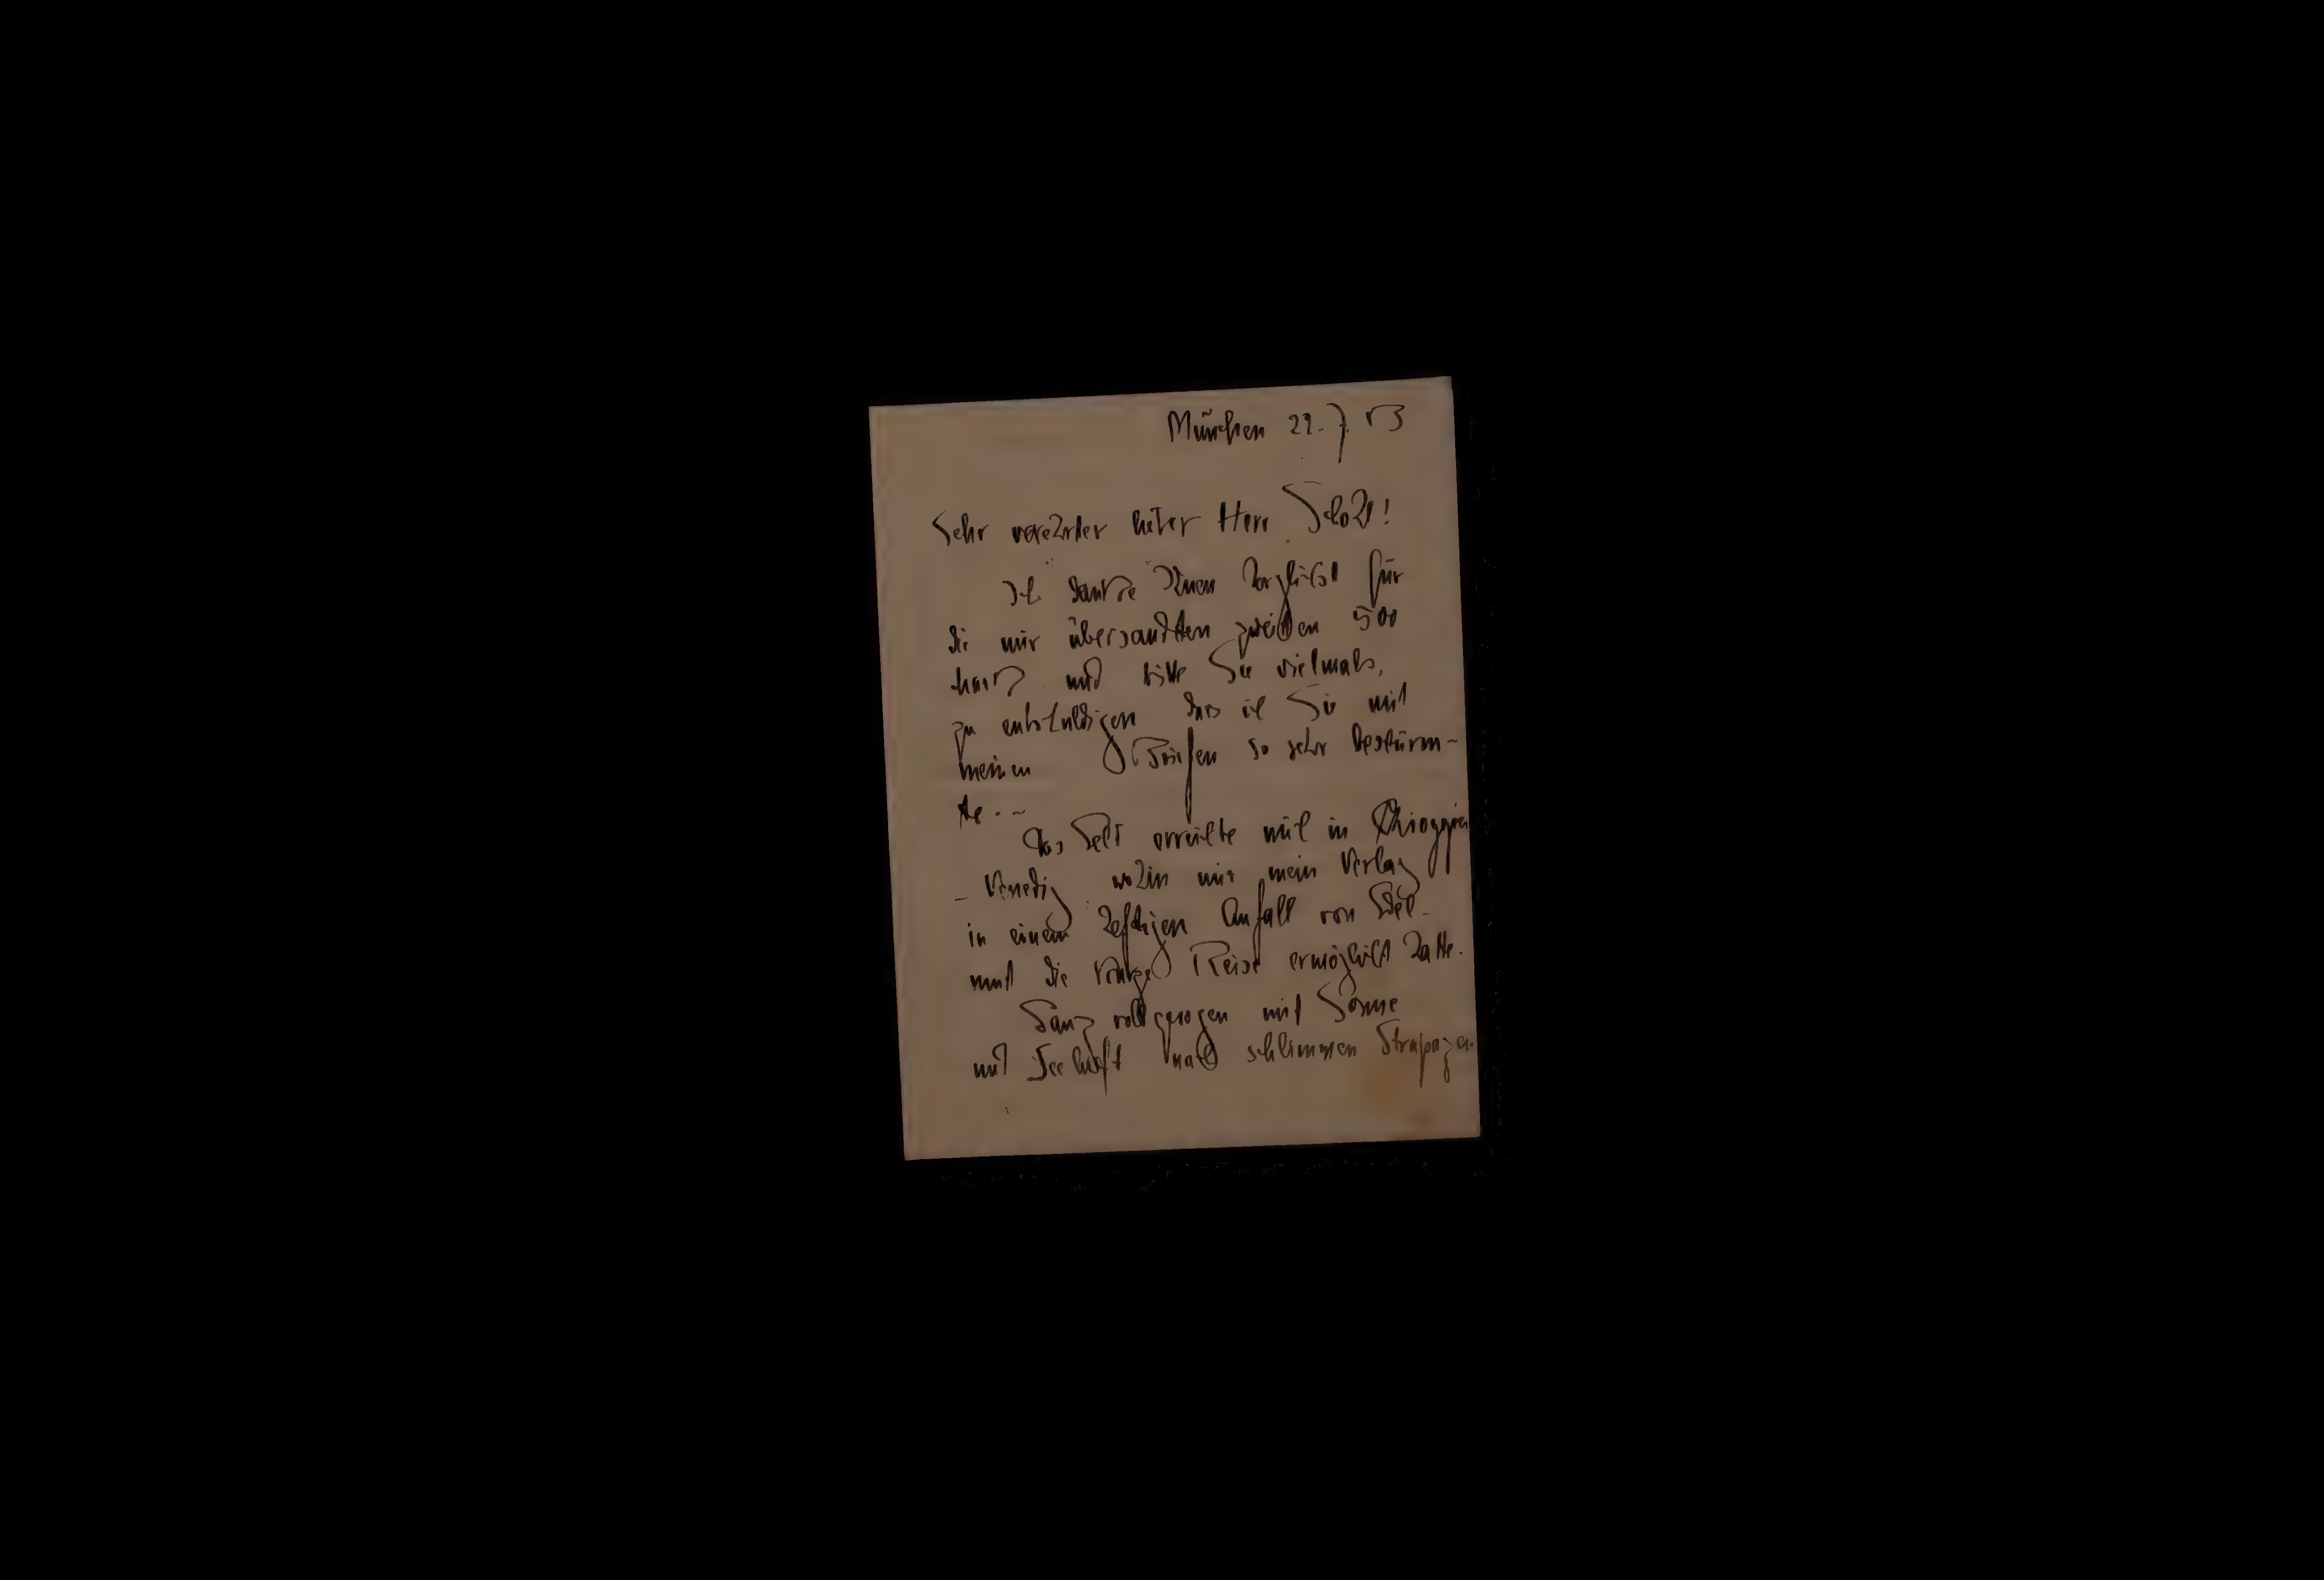 München 22. 7. 53
Sehr verehrter lieber Herr
Ich danke Ihnen herzlichst für
die mir übersandten zweiten 500
und bitte Sie vielmals,
zu entschuldigen dass ich Sie mit
meinen Briefen so sehr bestürm-
te. –
Das Geld erreichte mich in Chioggia
– Venedig wohin mir mein Verlag
in einem heftigen Anfall von Edel-
mut die kurze Reise ermöglicht hatte.
Ganz vollgesogen mit Sonne
und Seeluft nach schlimmen Strapazen